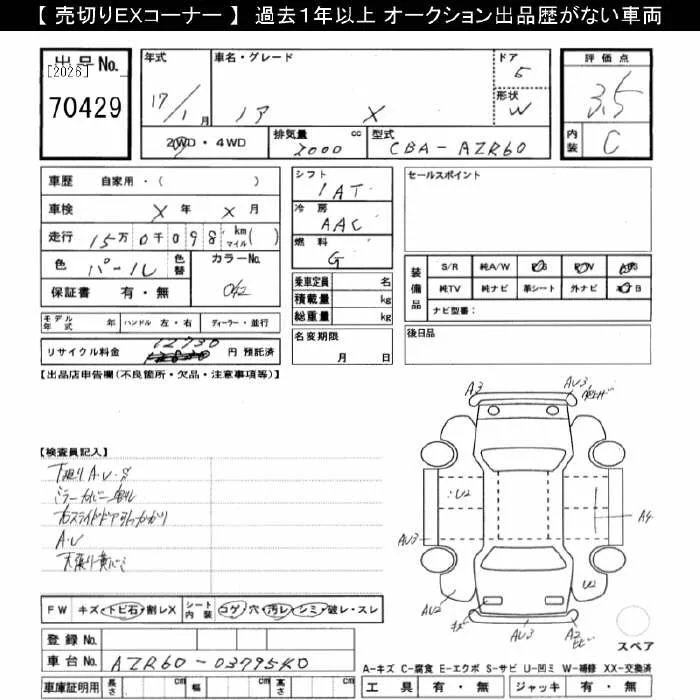 【 売切りEXコーナー 】 過去1年以上 オークション出品歴がない車両
出品No. [2026] 70429
年式 17/1月
車名・グレード ノア X
ドア 5
形状 W
評価点 3.5
内装 C
2WD・4WD
排気量 2000 cc
型式 CBA-AZR60
車歴 自家用・( )
車検 X年 X月
走行 15万0千098 km マイル( )
色 パール 色替 カラーNo. 042
保証書 有・無
シフト IAT
冷房 AAC
燃料 G
乗車定員 名
積載量 kg
総重量 kg
セールスポイント
装備品 S/R 純A/W
純TV 純ナビ 革シート 外ナビ
ナビ型番:
モデル年式 年 ハンドル 左・右 ディーラー・並行
リサイクル料金 12730 円 預託済
名変期限 月 日
後日品
【出品店申告欄(不良箇所・欠品・注意事項等)】
A3 AU3
【検査員記入】
下廻りA・U・S
U2
右スライドドア引っかかり
A4
A・U
AU3
U2
AU2
FW キズ・トビ石・割レX シート内装 コゲ・穴・汚レ・シミ・破レ・スレ
AU3 A2
スペア
登録No.
車台No. AZR60-0379540
A-キズ C-腐食 E-エクボ S-サビ U-凹ミ W-補修 XX-交換済
車庫証明用 長さ cm 幅 cm 高さ cm
工具 有・無 ジャッキ 有・無